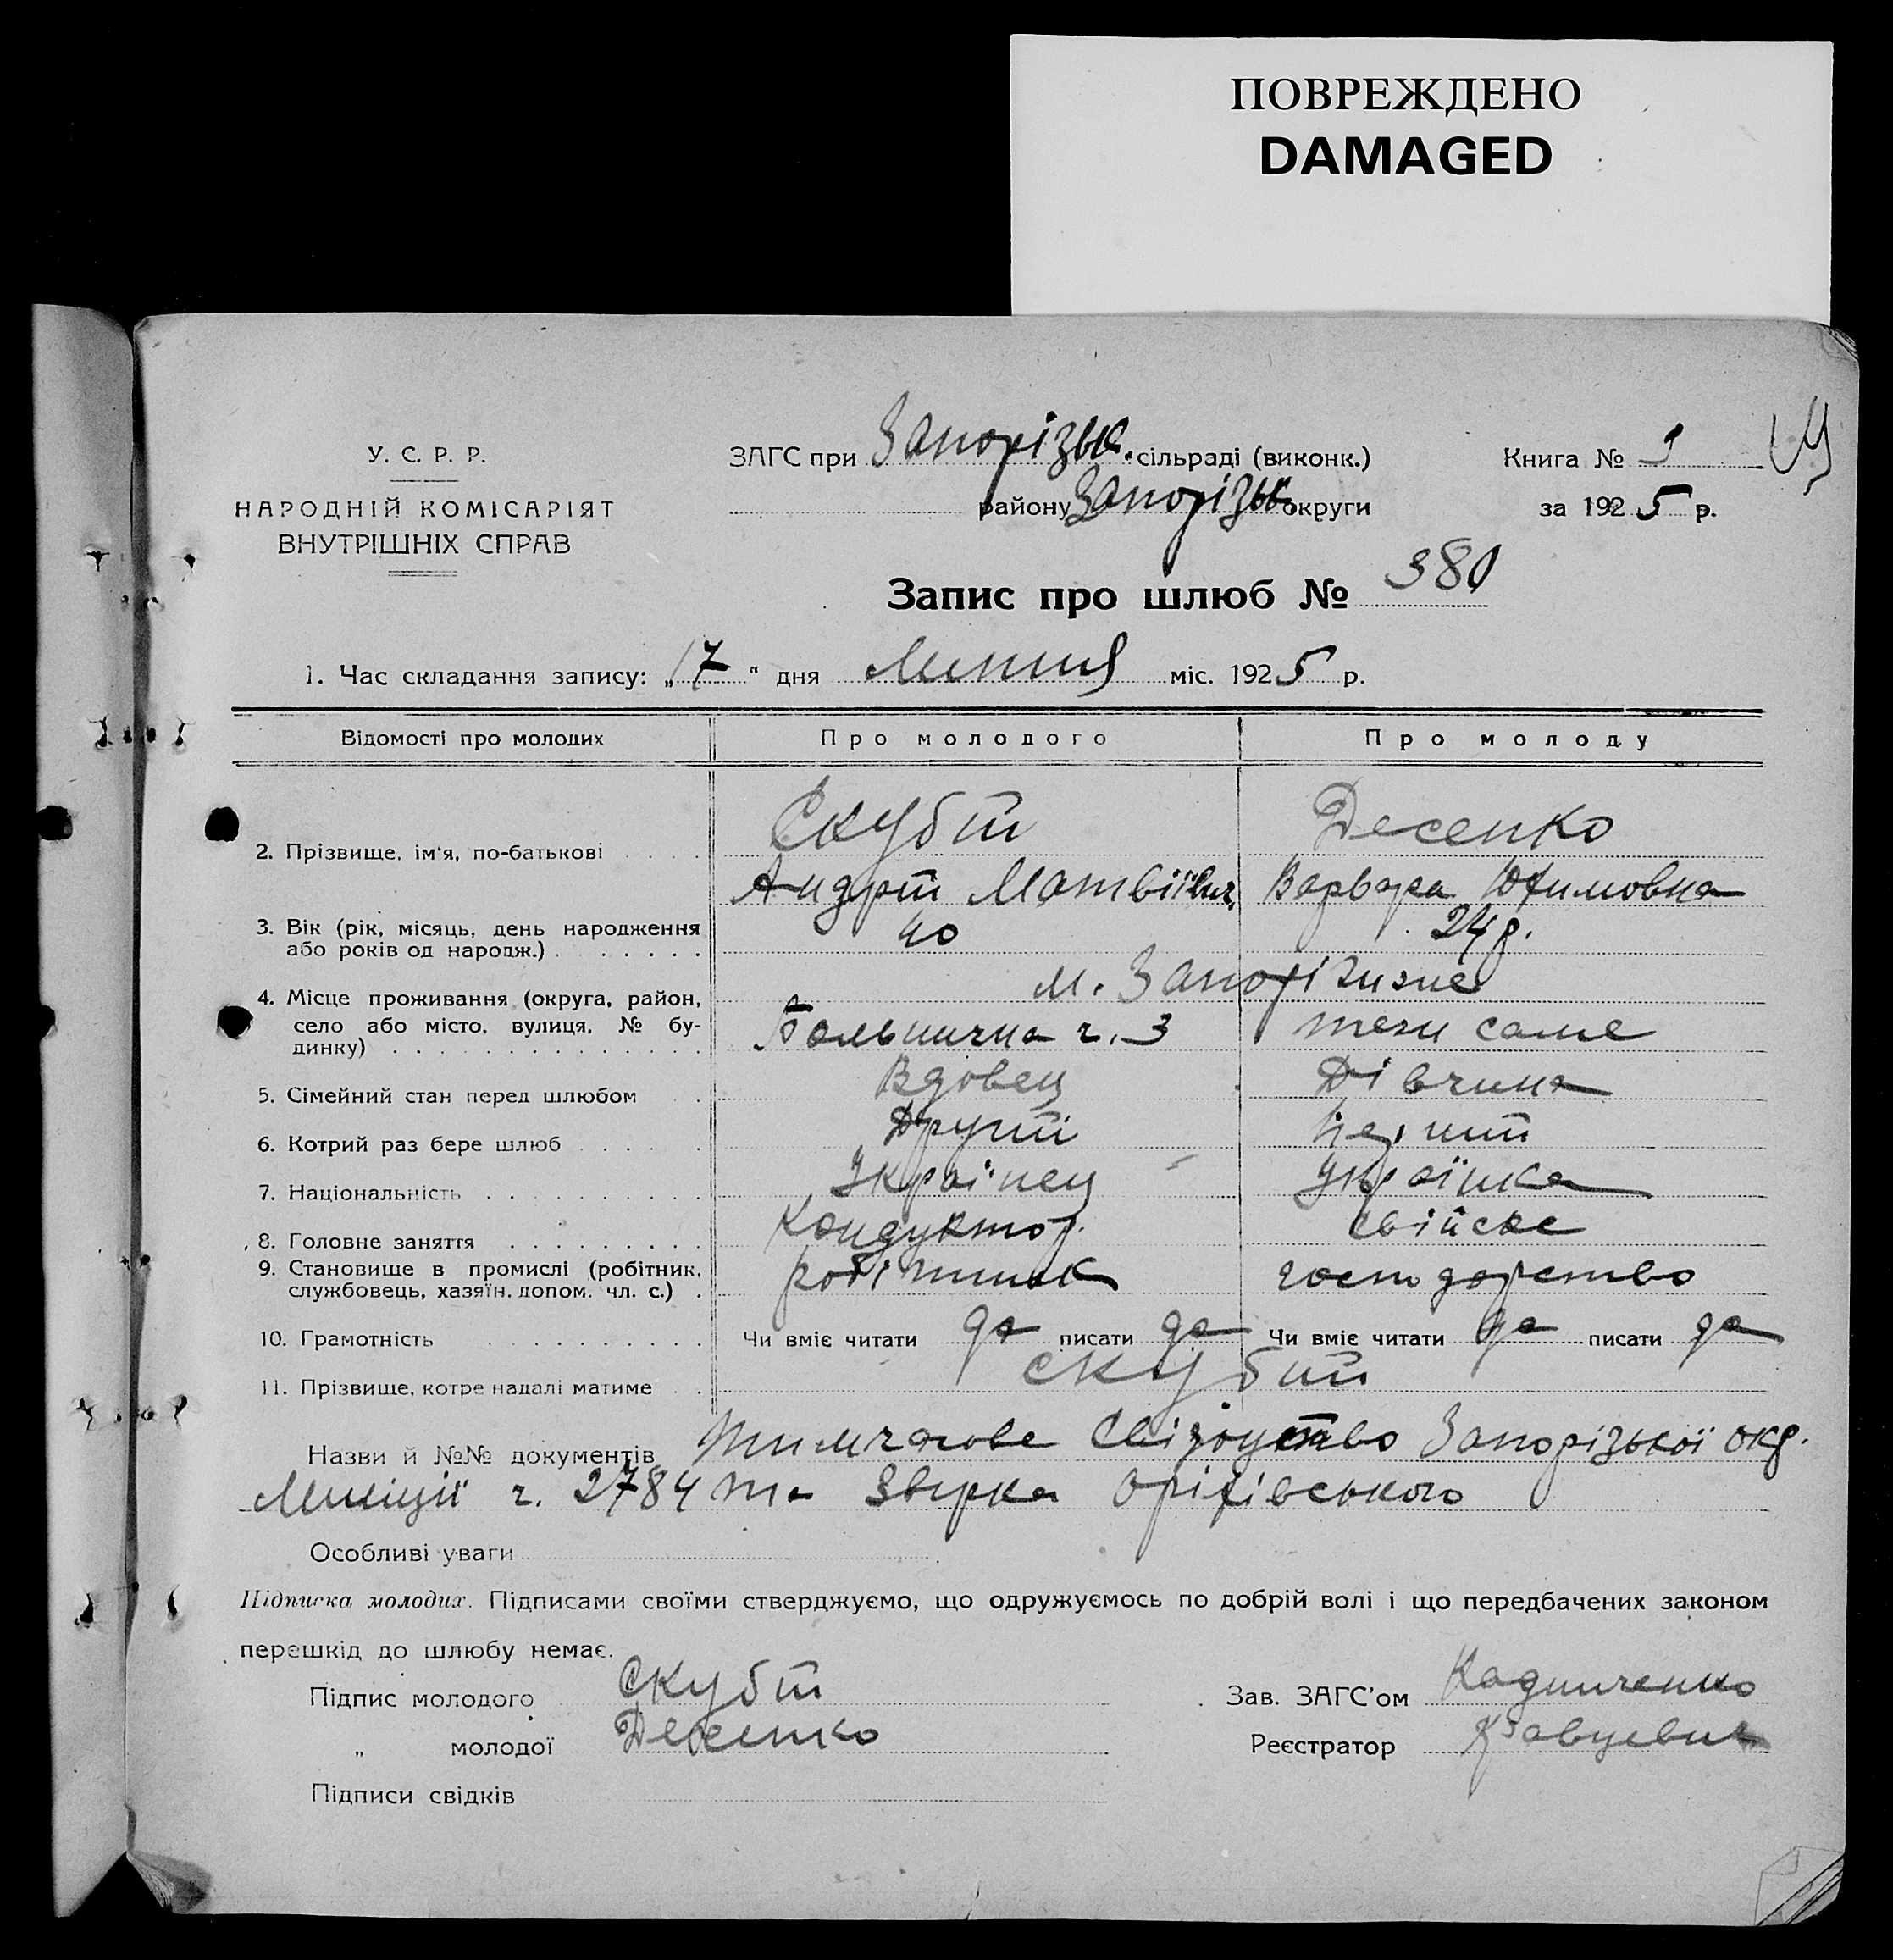 ПОВРЕЖДЕНО
DAMAGED
У. С. Р. Р.
НАРОДНІЙ КОМІСАРІЯТ
ВНУТРІШНІХ СПРАВ
ЗАГС при Запорізьк. сільраді (виконк.)
району Запорізьк округи
Книга №
за 1925 р.
Запис про шлюб № 380
1. Час складання запису: „17“ дня Липня міс. 1925 р.
Відомості про молодих Про молодого Про молоду
2. Прізвище, ім'я, по-батькові Скубій Десенко
Андрій Матвіївич. Варвара Юхимовна
3. Вік (рік, місяць, день народження або років од народж.) 40 24 р.
4. Місце проживання (округа, район, село або місто, вулиця, № будинку) м. Запоріжжє
Больнична ч. 3 теж саме
5. Сімейний стан перед шлюбом Вдовец Дівчина
6. Котрий раз бере шлюб Другий Перший
7. Національність Українец Українка
8. Головне заняття Кондуктор. свійске
9. Становище в промислі (робітник, службовець, хазяїн, допом. чл. с.) робітник господарство
10. Грамотність Чи вміє читати да писати да Чи вміє читати да писати да
11. Прізвище, котре надалі матиме Скубий
Назви й №№ документів Тимчасове Свідоцтво Запорізької окр.
Міліції ч. 2784 та Оріхівського
Особливі уваги
Підписка молодих. Підписами своїми стверджуємо, що одружуємось по добрій волі і що передбачених законом
перешкід до шлюбу немає.
Підпис молодого Скубій
„ молодої Десенко
Підписи свідків
Зав. ЗАГС'ом
Реєстратор Кравцевич